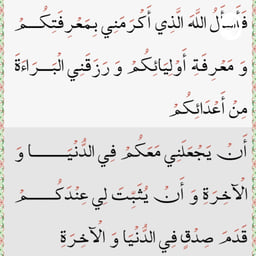 فَأَسْأَلُ اللَّهَ الَّذِي أَكْرَمَنِي بِمَعْرِفَتِكُمْ
وَ مَعْرِفَةِ أَوْلِيَائِكُمْ وَ رَزَقَنِي الْبَرَاءَةَ
مِنْ أَعْدَائِكُمْ
أَنْ يَجْعَلَنِي مَعَكُمْ فِي الدُّنْيَا وَ
الْآخِرَةِ وَ أَنْ يُثَبِّتَ لِي عِنْدَكُمْ
قَدَمَ صِدْقٍ فِي الدُّنْيَا وَ الْآخِرَةِ